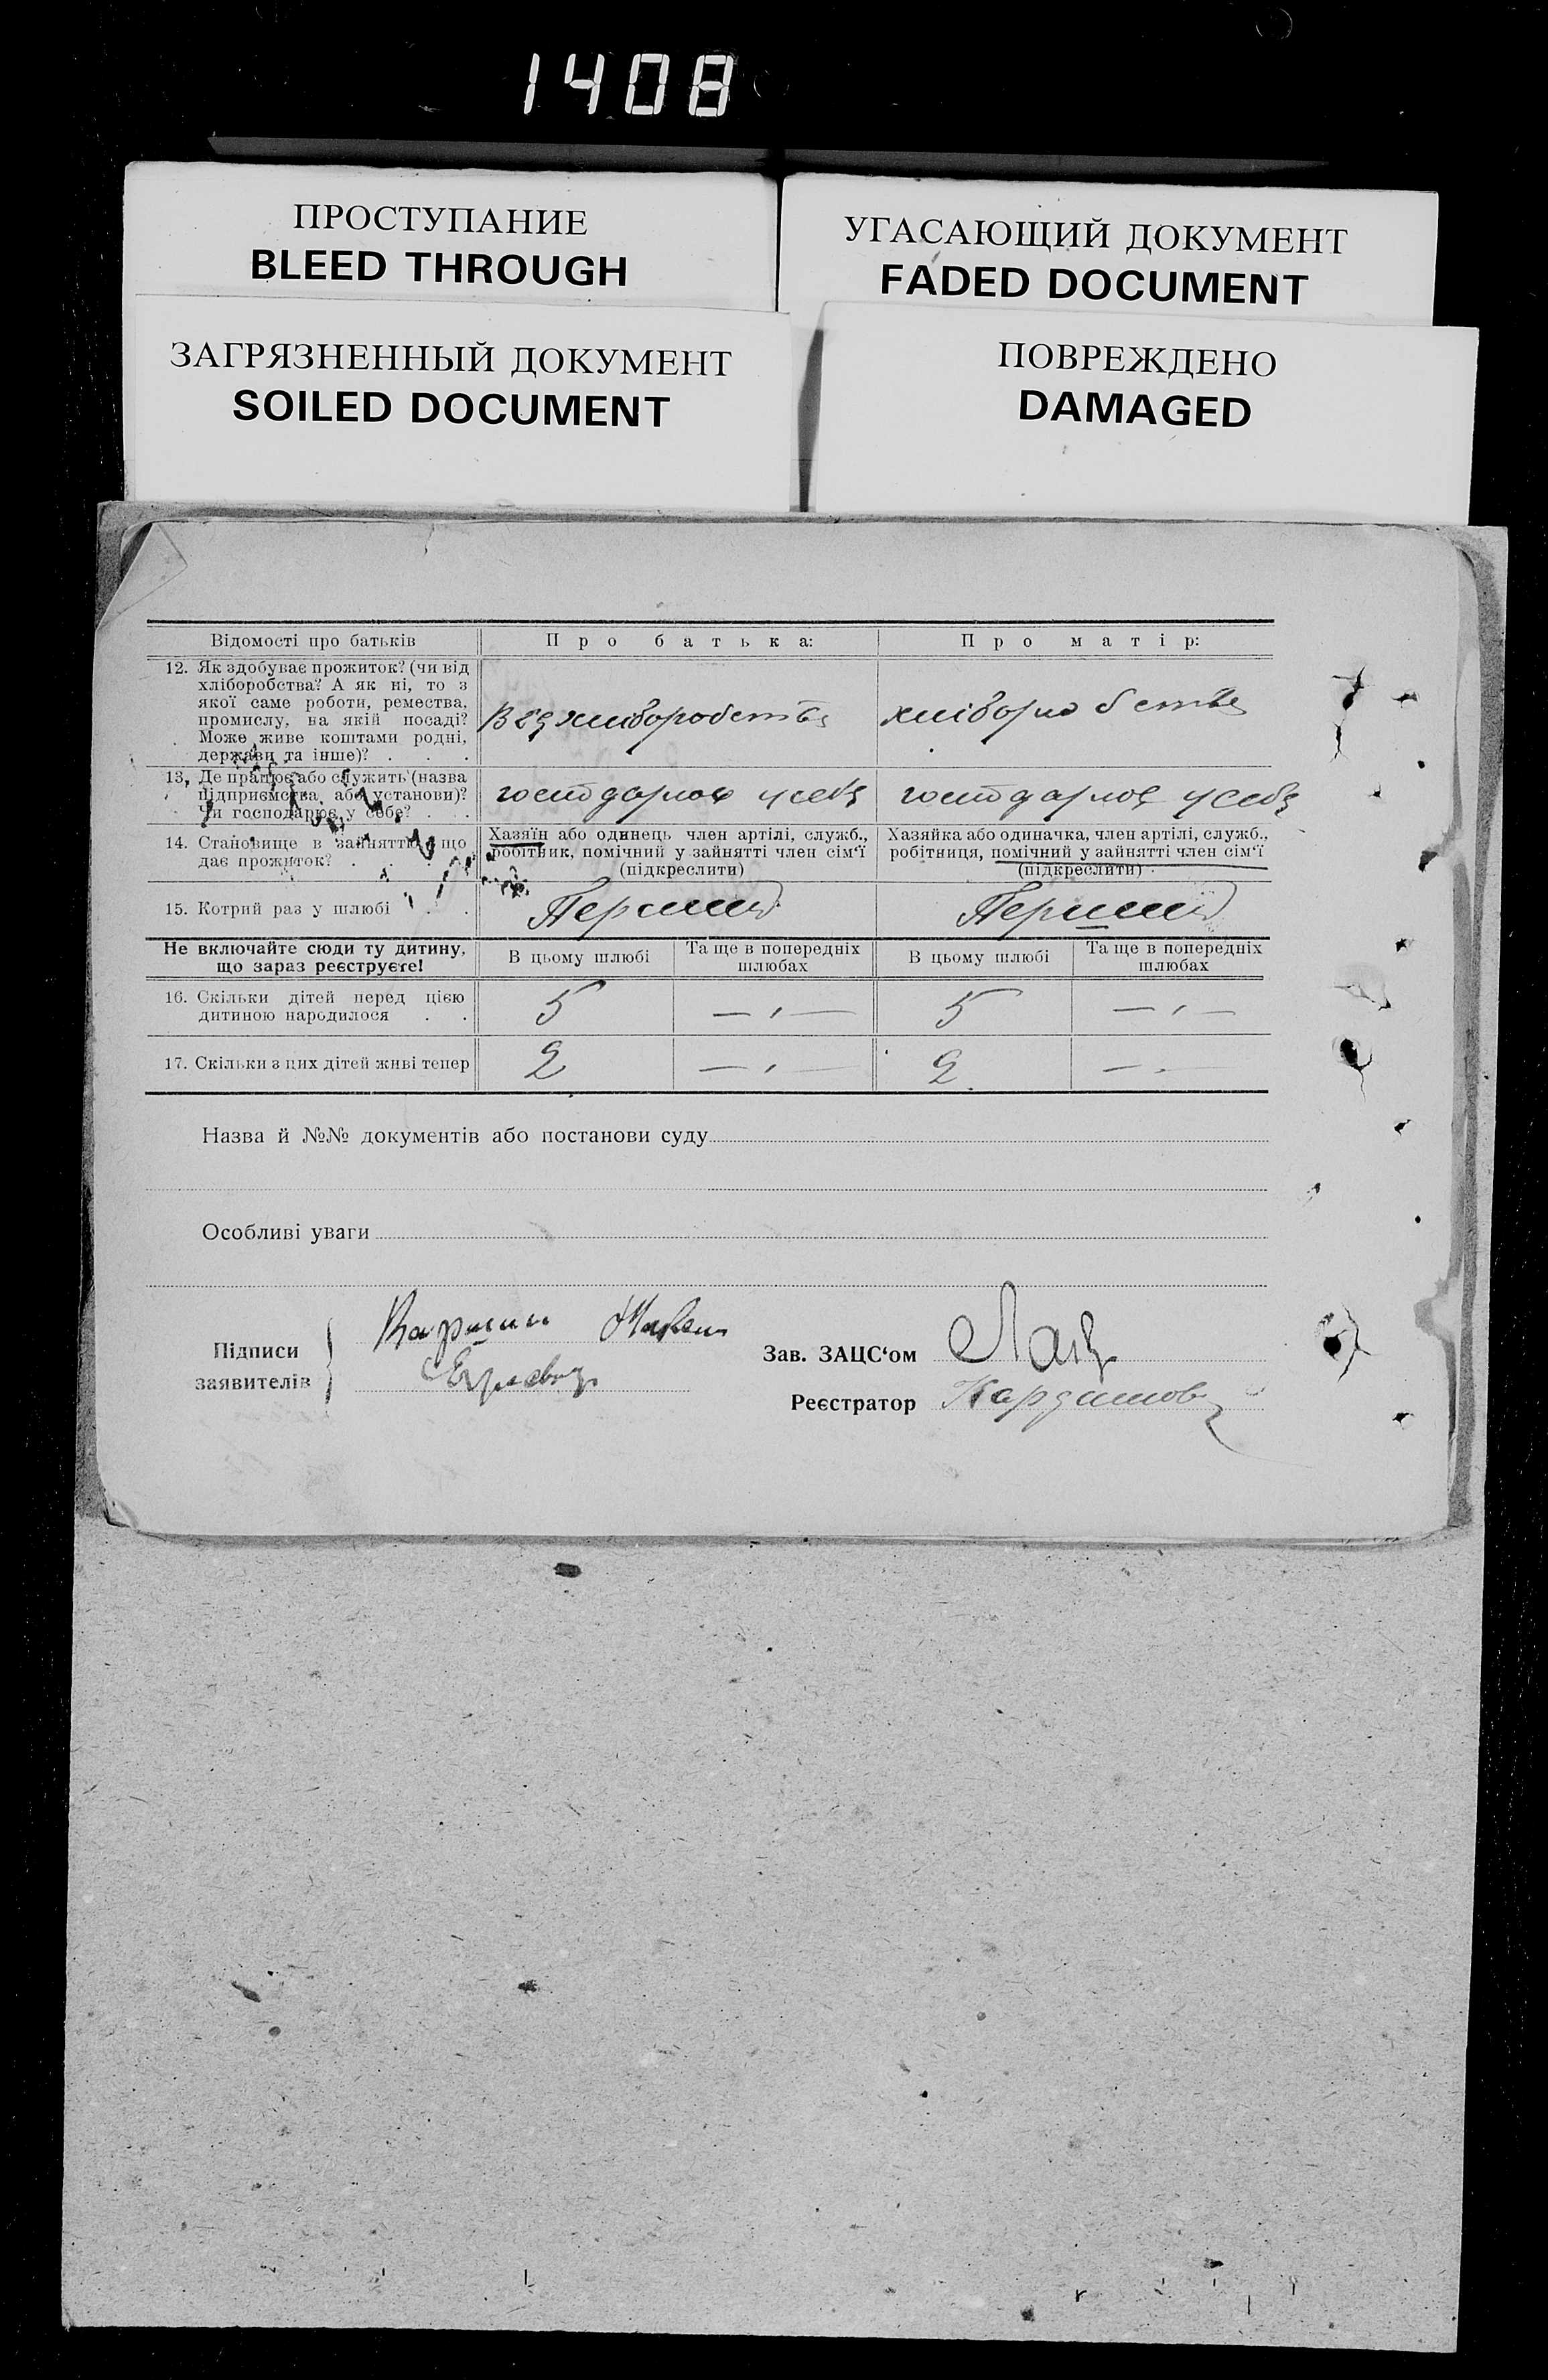 1408
ПРОСТУПАНИЕ
BLEED THROUGH
УГАСАЮЩИЙ ДОКУМЕНТ
FADED DOCUMENT
ЗАГРЯЗНЕННЫЙ ДОКУМЕНТ
SOILED DOCUMENT
ПОВРЕЖДЕНО
DAMAGED
Відомості про батьків
Про батька:
Про матір:
12. Як здобуває прожиток? (чи від
хліборобства? А як ні, то з
якої саме роботи, ремества,
промислу, на якій посаді?
Може живе коштами родні,
держави та інше)? . . .
хліборобства
хліборобства
13. Де працює або служить (назва
підприємства або установи)?
Чи господарює у себе? . . .
господарює у себе
господарює у себе
14. Становище в занятті, що
дає прожиток? . . . .
Хазяїн або одинець член артілі, служб.,
робітник, помічний у зайнятті член сім'ї
(підкреслити)
Хазяйка або одиначка, член артілі, служб.,
робітниця, помічний у зайнятті член сім'ї
(підкреслити)
15. Котрий раз у шлюбі . .
Перший
Перший
Не включайте сюди ту дитину,
що зараз реєструєте!
В цьому шлюбі
Та ще в попередніх
шлюбах
В цьому шлюбі
Та ще в попередніх
шлюбах
16. Скільки дітей перед цією
дитиною народилося . .
5
—,—
5
—,—
17. Скільки з цих дітей живі тепер
2
—,—
2
—,—
Назва й №№ документів або постанови суду
Особливі уваги
Підписи
заявителів
Зав. ЗАЦС'ом
Реєстратор